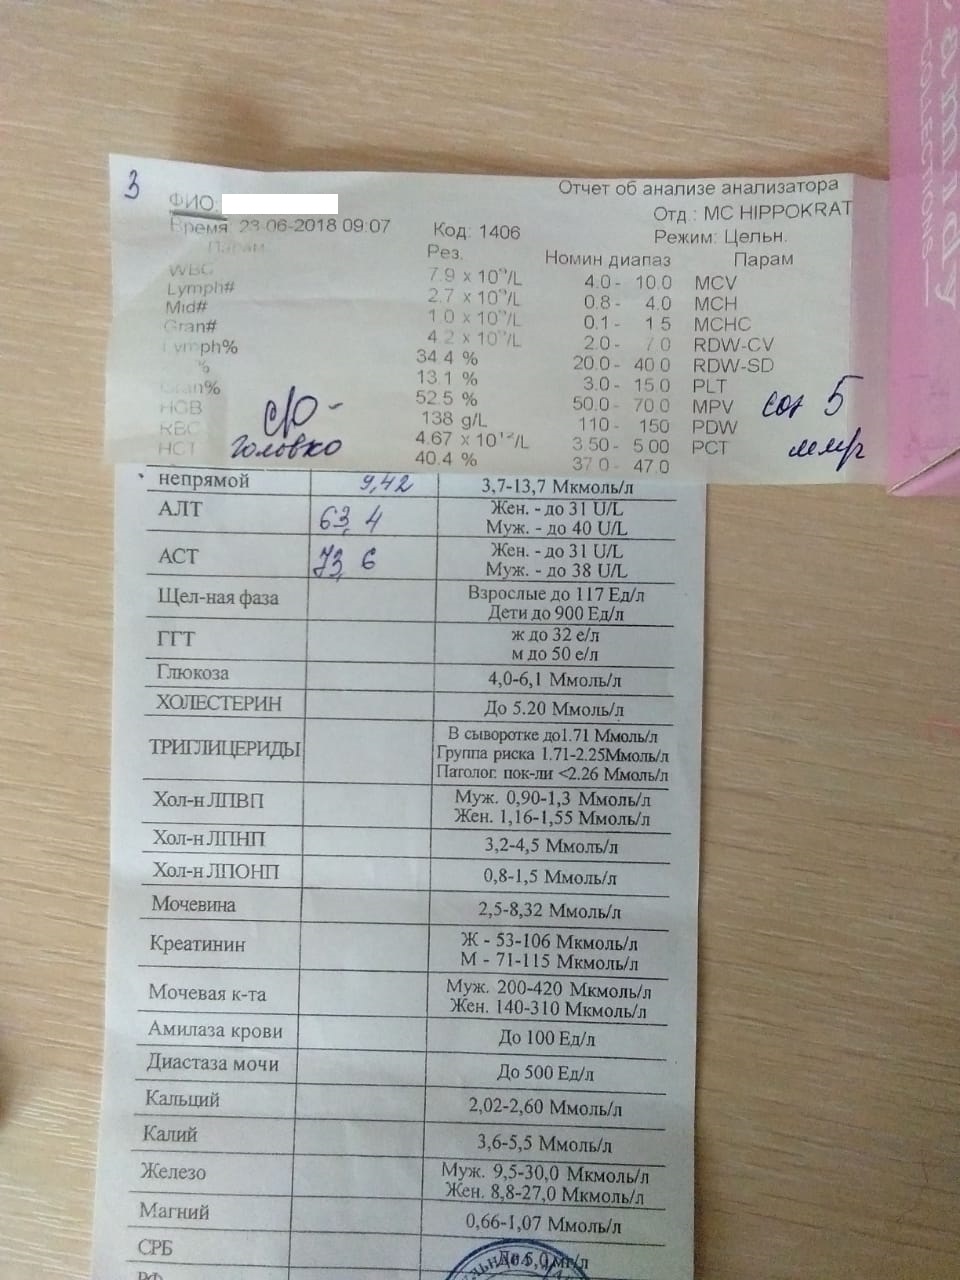 3
Отчет об анализе анализатора
ФИО:
Отд.: MC HIPPOKRAT
Время: 23-06-2018 09:07
Код: 1406
Режим: Цельн.
Парам Рез. Номин диапаз Парам
WBC 7.9 x 10⁹/L 4.0 - 10.0 MCV
Lymph# 2.7 x 10⁹/L 0.8 - 4.0 MCH
Mid# 1.0 x 10⁹/L 0.1 - 1.5 MCHC
Gran# 4.2 x 10⁹/L 2.0 - 7.0 RDW-CV
Lymph% 34.4 % 20.0 - 40.0 RDW-SD
% 13.1 % 3.0 - 15.0 PLT
Gran% 52.5 % 50.0 - 70.0 MPV
HGB 138 g/L 110 - 150 PDW
RBC 4.67 x 10¹²/L 3.50 - 5.00 PCT
HCT 40.4 % 37.0 - 47.0
соэ 5
непрямой 9,42 3,7-13,7 Мкмоль/л
АЛТ 63,4 Жен. - до 31 U/L
Муж. - до 40 U/L
АСТ 73,6 Жен. - до 31 U/L
Муж. - до 38 U/L
Щел-ная фаза Взрослые до 117 Ед/л
Дети до 900 Ед/л
ГГТ ж до 32 е/л
м до 50 е/л
Глюкоза 4,0-6,1 Ммоль/л
ХОЛЕСТЕРИН До 5.20 Ммоль/л
ТРИГЛИЦЕРИДЫ В сыворотке до1.71 Ммоль/л
Группа риска 1.71-2.25Ммоль/л
Патолог. пок-ли <2.26 Ммоль/л
Хол-н ЛПВП Муж. 0,90-1,3 Ммоль/л
Жен. 1,16-1,55 Ммоль/л
Хол-н ЛПНП 3,2-4,5 Ммоль/л
Хол-н ЛПОНП 0,8-1,5 Ммоль/л
Мочевина 2,5-8,32 Ммоль/л
Креатинин Ж - 53-106 Мкмоль/л
М - 71-115 Мкмоль/л
Мочевая к-та Муж. 200-420 Мкмоль/л
Жен. 140-310 Мкмоль/л
Амилаза крови До 100 Ед/л
Диастаза мочи До 500 Ед/л
Кальций 2,02-2,60 Ммоль/л
Калий 3,6-5,5 Ммоль/л
Железо Муж. 9,5-30,0 Мкмоль/л
Жен. 8,8-27,0 Мкмоль/л
Магний 0,66-1,07 Ммоль/л
СРБ До 5,0 мг/л
РФ
COLLECTIONS